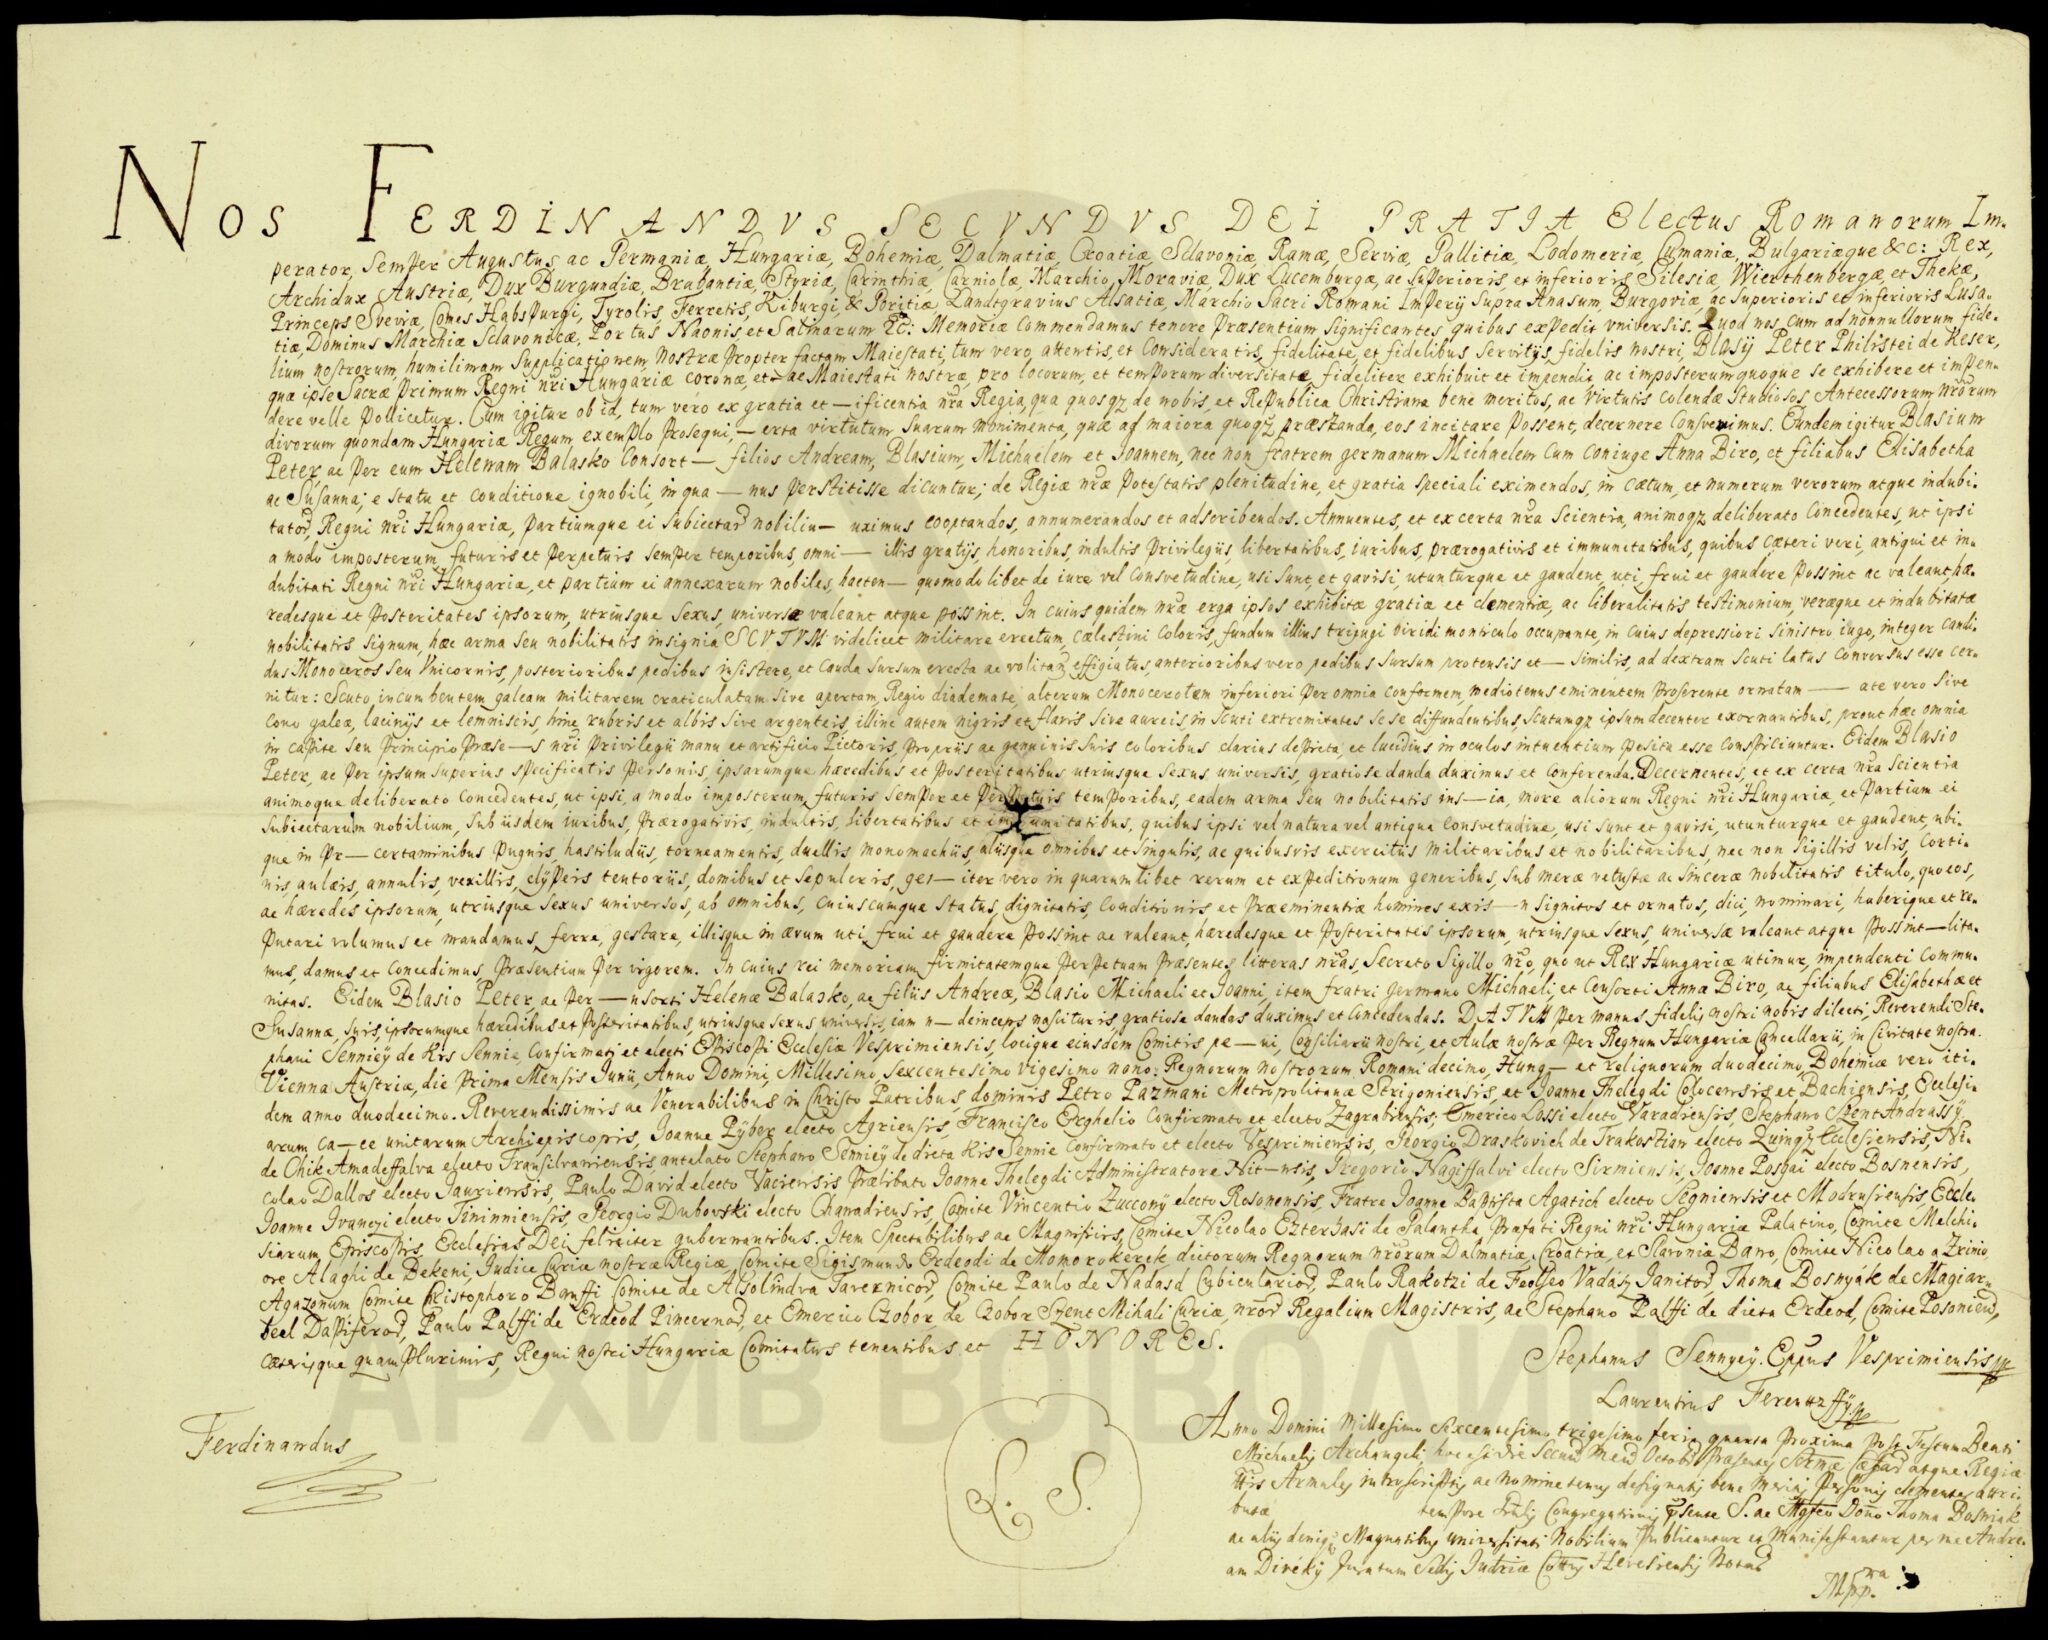 NOS FERDINANDVS SECVNDVS DEI GRATIA Electus Romanorum Im-
perator, Semper Augustus, ac Germaniæ, Hungariæ, Bohemiæ, Dalmatiæ, Croatiæ, Sclavoniæ, Ramæ, Serviæ, Gallitiæ, Lodomeriæ, Cumaniæ, Bulgariæque &c: Rex,
Archidux Austriæ, Dux Burgundiæ, Brabantiæ, Styriæ, Carinthiæ, Carniolæ, Marchio Moraviæ, Dux Lucemburgæ, ac superioris, et inferioris Silesiæ, Wierthenbergæ, et Thekæ,
Princeps Sveviæ, Comes Habspurgi, Tyrolis, Ferretis, Kiburgi, & Goritiæ, Landtgravius Alsatiæ, Marchio Sacri Romani Imperÿ supra Anasum, Burgoviæ, ac superioris et inferioris Lusa-
tiæ, Dominus Marchiæ Sclavonicæ, Portus Naonis, et Salinarum &c: Memoriæ commendamus tenore præsentium significantes, quibus expedit vniversis. Quod nos, cum ad nonnullorum fide-
lium nostrorum, humilimam supplicationem, nostræ propter factam Maiestati, tum vero, attentis, et consideratis, fidelitate, et fidelibus servitÿs, fidelis nostri, Blasÿ Peter Philistei de Keser,
quæ ipse Sacræ primum Regni nri Hungariæ coronæ, et — ac Maiestati nostræ, pro locorum, et temporum diversitate, fideliter exhibuit et impendit, ac imposterum quoque se exhibere et impen-
dere velle pollicetur. Cum igitur ob id, tum vero ex gratia et — ificentia nra Regia, qua quosqz de nobis, et Republica Christiana bene meritos, ac virtutis colendæ studiosos, Antecessorum nrorum
divorum quondam Hungariæ Regum exemplo prosequi, — erta virtutum suarum monimenta, quæ ad maiora quoqz præstanda, eos incitare possent, decernere consvevimus. Eundem igitur Blasium
Peter, ac per eum Helenam Balasko Consort — filios Andream, Blasium, Michaelem et Joannem, nec non fratrem germanum Michaelem cum coniuge Anna Biro, et filiabus Elisabetha
ac Susanna; e statu et conditione ignobili, in qua — nus perstitisse dicuntur; de Regiæ nræ potestatis plenitudine, et gratia speciali eximendos, in cætum, et numerum verorum atque indubi-
tatod, Regni nri Hungariæ, partiumque ei subiectard nobiliu — uximus cooptandos, annumerandos et adscribendos. Annuentes, et ex certa nra scientia, animoqz deliberato concedentes, ut ipsi
a modo imposterum futuris et perpetuis semper temporibus, omni — illis gratÿs, honoribus, indultis privilegiis, libertatibus, iuribus, prærogativis et immunitatibus, quibus cæteri veri, antiqui et in-
dubitati Regni nri Hungariæ, et partium ei annexarum nobiles, hacten — quomodolibet de iure vel consvetudine, usi sunt, et gavisi, utunturque et gaudent, uti, frui et gaudere possint ac valeant, hæ-
redesque et posteritates ipsorum, utriusque sexus, universæ valeant atque possint. In cuius quidem nræ erga ipsos exhibitæ gratiæ et clementiæ, ac liberalitatis testimonium, veræque et indubitatæ
nobilitatis signum, hæc arma seu nobilitatis insignia SCVTVM videlicet militare erectum, cælestini coloris, fundum illius trijugi viridi monticulo occupante, in cuius depressiori sinistro iugo, integer candi-
dus Monoceros seu Unicornis, posterioribus pedibus insistere, et cauda sursum erecta ac volitan effigiatus, anterioribus vero pedibus sursum protensis et — similis, ad dextram scuti latus conversus esse cer-
nitur: Scuto incumbentem galeam militarem craticulatam sive apertam, Regio diademate, alterum Monocerotem inferiori per omnia conformem, mediotenus eminentem proferente ornatam — ate vero sive
cono galeæ, lacinÿs et lemniscis, hinc rubris et albis sive argenteis, illinc autem nigris et flavis sive aureis in scuti extremitates sese diffundentibus, scutumqz ipsum decenter exornantibus, prout hæc omnia
in capite seu principio præse — s nri privilegii manu et artificio Pictoris, propriis ac genuinis suis coloribus clarius depicta, et lucidius in oculos intuentium posita esse conspiciuntur. Eidem Blasio
Peter, ac per ipsum superius specificatis personis, ipsarumque hæredibus et posteritatibus utriusque sexus universis, gratiose danda duximus et conferenda. Decernentes, et ex certa nra scientia
animoque deliberato concedentes, ut ipsi, a modo imposterum futuris semper et perpetuis temporibus, eadem arma seu nobilitatis ins — ia, more aliorum Regni nri Hungariæ, et Partium ei
subiectarum nobilium, sub iisdem iuribus, prærogativis, indultis, libertatibus et immunitatibus, quibus ipsi vel natura vel antiqua consvetudine, usi sunt et gavisi, utunturque et gaudent, ubi-
que in pr — certaminibus pugnis, hastiludiis, torneamentis, duellis, monomachiis, aliisque omnibus et singulis, ac quibusvis exercitus militaribus et nobilitaribus, nec non sigillis velis, corti-
nis, aulæis, annulis, vexillis, clÿpeis tentoriis, domibus et sepulcris, gen — iter vero in quarumlibet rerum et expeditionum generibus, sub meræ vetustæ ac sinceræ nobilitatis titulo, quo eos,
ac hæredes ipsorum, utriusque sexus universos, ab omnibus, cuiuscumque status, dignitatis, conditionis et præeminentiæ homines exis — n signitos et ornatos, dici, nominari, haberique et re-
putari volumus et mandamus, ferre, gestare, illisque in ævum uti, frui et gaudere possint ac valeant, hæredesque et posteritates ipsorum, utriusque sexus, universæ valeant atque possint — lita-
mus, damus et concedimus, præsentium per vigorem. In cuius rei memoriam firmitatemque perpetuam præsentes litteras nras, secreto sigillo nro, quo ut Rex Hungariæ utimur, impendenti commu-
nitas. Eidem Blasio Peter, ac per — nsorti Helenæ Balasko, ac filiis Andreæ, Blasio Michaeli et Joanni, item fratri germano Michaeli, et Consorti Annæ Biro, ac filiabus Elisabethæ et
Susannæ, suis, ipsorumque hæredibus et posteritatibus, utriusque sexus universis, iam n — deinceps nascituris, gratiose dandas duximus et concedendas. DATVM per manus fidelis nostri nobis dilecti, Reverendi Ste-
phani Senniey de Kis Sennie, confirmati et electi Episcopi Ecclesiæ Vesprimiensis, locique eiusdem Comitis pe — ui, Consiliarii nostri, et Aulæ nostræ per Regnum Hungariæ Cancellarii, in Civitate nostra
Vienna Austriæ, die prima Mensis Junii, Anno Domini, Millesimo, sexcentesimo vigesimo nono: Regnorum nostrorum, Romani decimo, Hung — et reliquorum duodecimo, Bohemiæ vero iti-
dem anno duodecimo. Reverendissimis ac Venerabilibus in Christo Patribus, dominis Petro Pazmani Metropolitanæ Strigoniensis, et Joanne Thelegdi Colocensis et Bachiensis, Ecclesi-
arum ca — ce unitarum Archiepiscopis, Joanne Pÿber electo Agriensis, Francisco Erghelio confirmato et electo Zagrabiensis, Emerico Lossi electo Varadiensis, Stephano Szent Andrassÿ
de Chik Amadeffalva electo Transilvaniensis, antelato Stephano Senniey de dicta Kis Sennie confirmato et electo Vesprimiensis, Georgio Draskovich de Trakostian electo Quinqz Ecclesiensis, Ni-
colao Dallos electo Jauriensis, Paulo David electo Vaciensis prælibato Joanne Thelegdi Administratore Nit — nsis, Gregorio Nagiffalvi electo Sirmiensis, Joanne Posgai electo Bosnensis,
Joanne Ivanczi electo Tininniensis, Georgio Dubovski electo Chanadiensis, Comite Vincentio Zuccony electo Rosonensis, Fratre Joanne Baptista Agatich electo Segniensis et Modrusiensis Eccle-
siarum Episcopis Ecclesias Dei feliciter gubernantibus. Item Spectabilibus ac Magnificis, Comite Nicolao Ezterhasi de Galantha, præfati Regni nri Hungariæ Palatino, Comite Melchi-
ore Alaghi de Bekeni, Judice Curiæ nostræ Regiæ, Comite Sigismundo Erdeodi de Monorokerek dictorum Regnorum nrorum Dalmatiæ, Croatiæ, et Slavoniæ Bano, Comite Nicolao a Zrinio
Agazonum Comite Christophoro Banffi Comite de Alsolindva Tavernicod, Comite Paulo de Nadasd Cubiculariod, Paulo Rakotzi de Feolseo Vadász Janitod, Thoma Bosnyák de Magiar-
beel Dapiferod, Paulo Palffi de Erdeod Pincernod, et Emerico Czobor, de Czobor Szent Mihali Curiæ, nrod Regalium Magistris, ac Stephano Palffi de dicta Erdeod, Comite Posoniens,
cæterisque quam plurimis, Regni nostri Hungariæ Comitatus tenentibus et HONORES.
Stephanus Sennyey. Eppus Vesprimiensis
Laurentius Ferentzffÿ
Ferdinandus
L. S.
Anno Domini Millesimo sexcentesimo trigesimo feria quarta proxima post Festum Beati
Michaelis Archangeli, hoc est die Præsentes atque Regiæ
Armales introscriptis ac nominetenus designatis bene personis clementer attri-
butæ tempore Congregationis S. ac Thoma Bosniak
ac aliis Magnatibus universitati Nobilium publicantur et manifestantur per me Andre-
am Divéky Juratum Sedis
АРХИВ ВОЈВОДИНЕ